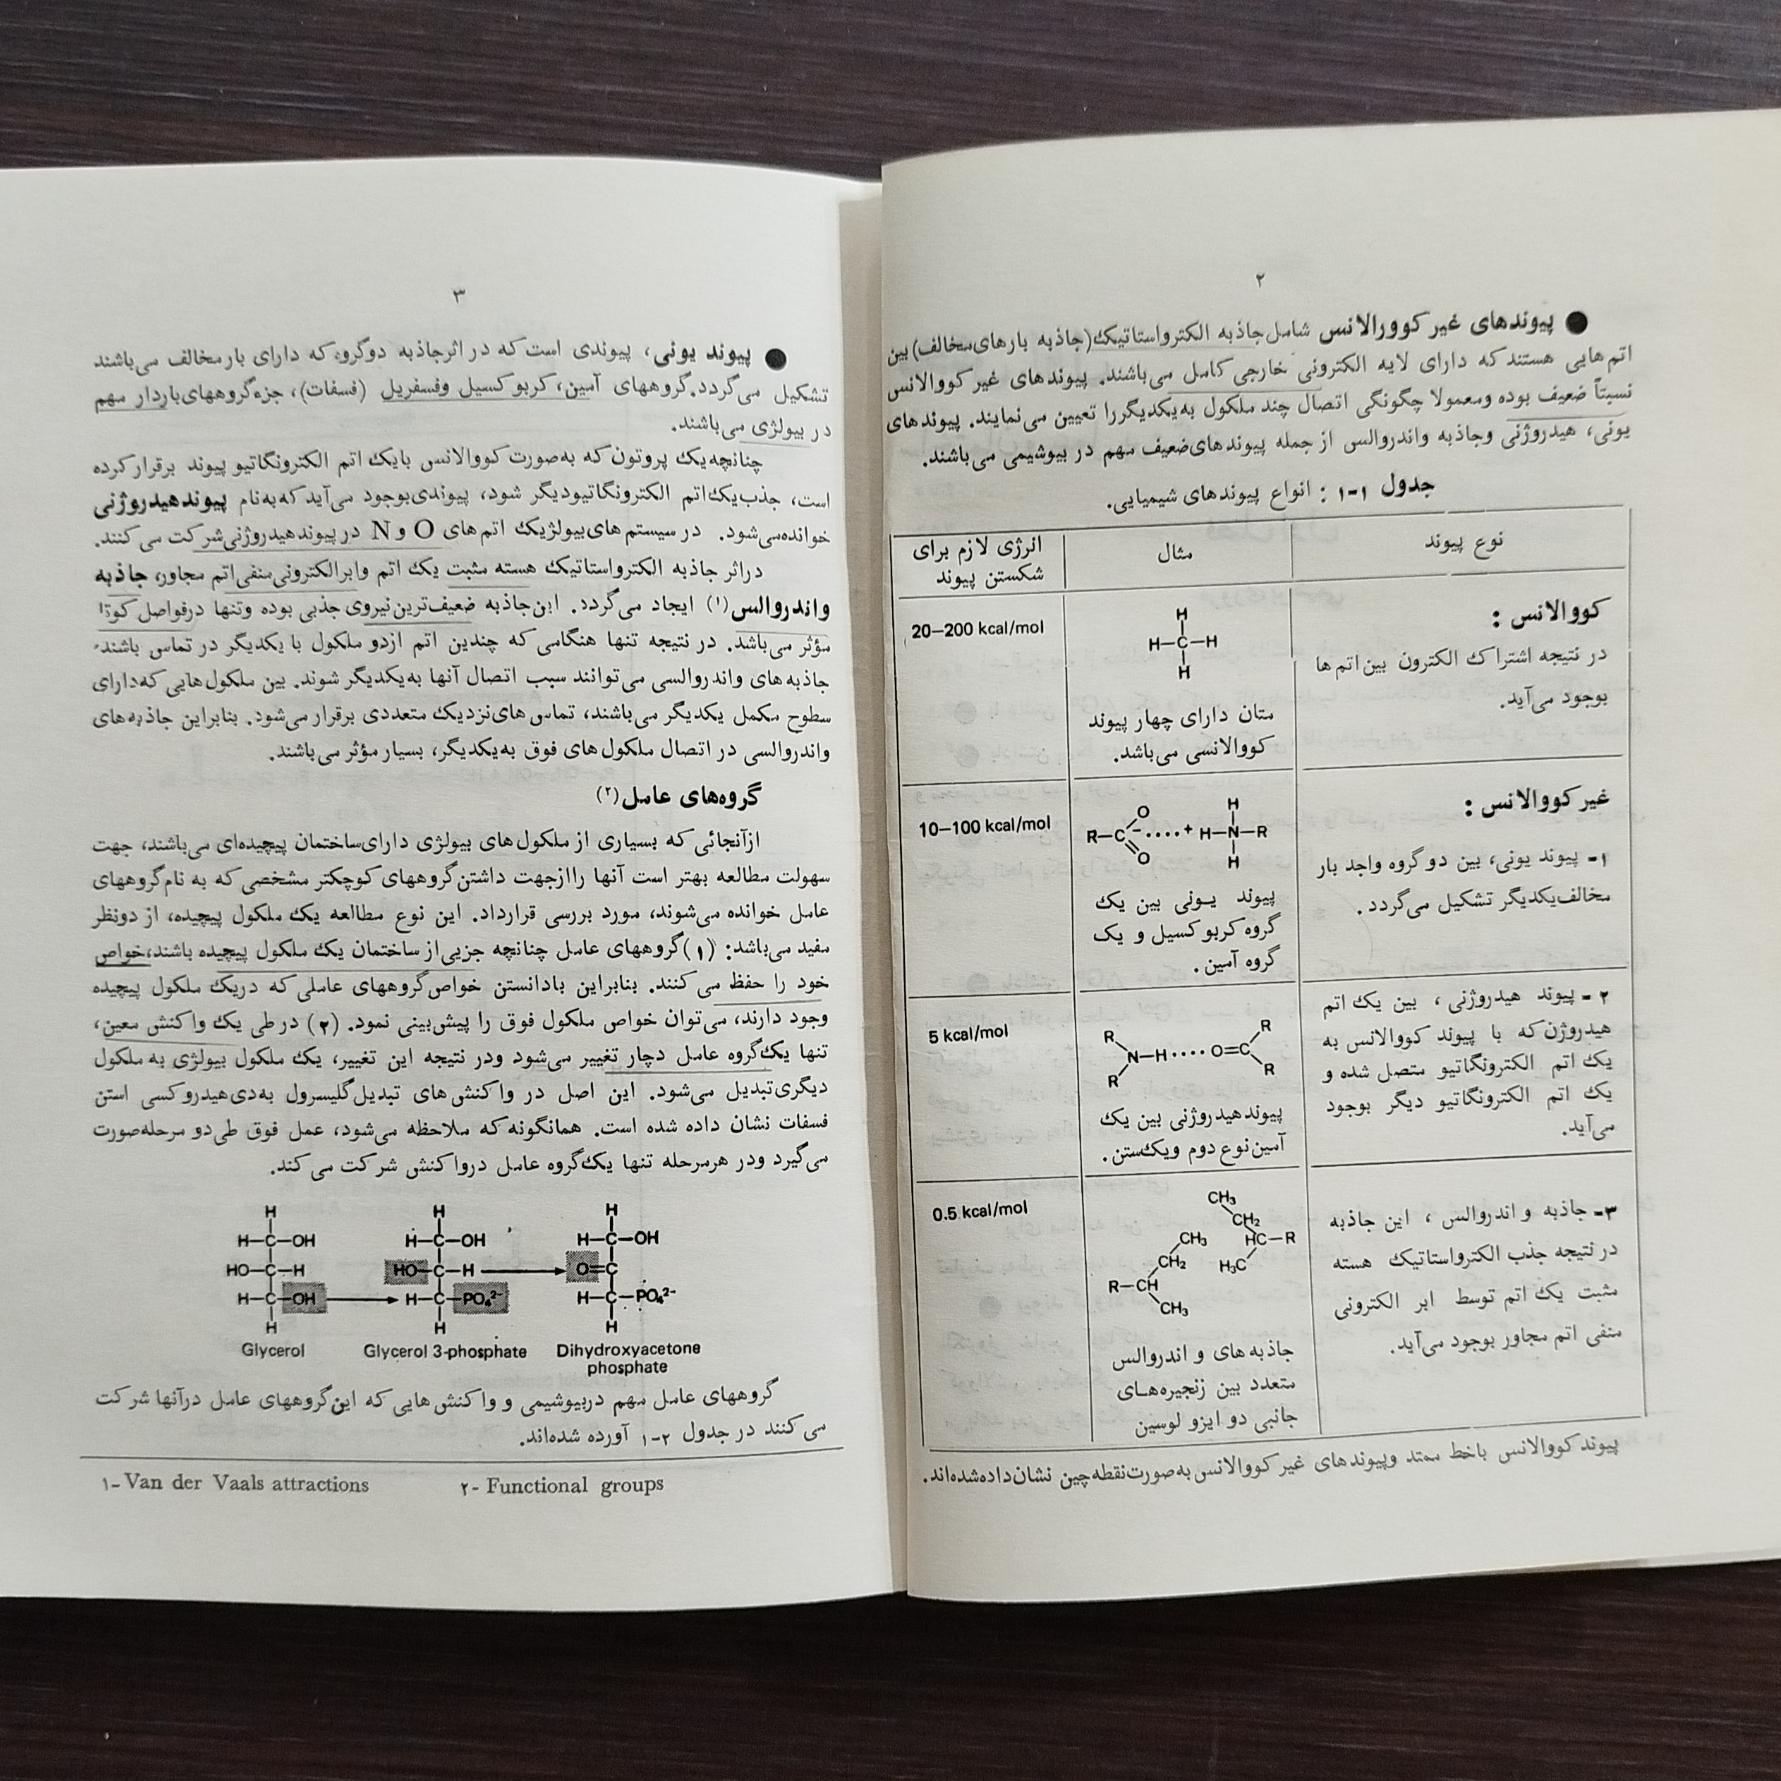 ۲
● پیوندهای غیر کوورالانس شامل جاذبه الکترواستاتیک(جاذبه بارهای مخالف) بین
اتم‌هایی هستند که دارای لایه الکترونی خارجی کامل می‌باشند. پیوندهای غیر کووالانس
نسبتاً ضعیف بوده ومعمولا چگونگی اتصال چند ملکول به‌یکدیگررا تعیین می‌نمایند. پیوندهای
یونی، هیدروژنی وجاذبه واندروالس از جمله پیوندهای ضعیف مهم در بیوشیمی می‌باشند.
جدول ۱-۱ : انواع پیوندهای شیمیایی.
نوع پیوند
مثال
انرژی لازم برای
شکستن پیوند
کووالانس :
در نتیجه اشتراک الکترون بین اتم ها
بوجود می‌آید.
H
H–C–H
H
متان دارای چهار پیوند
کووالانسی می‌باشد.
20–200 kcal/mol
غیر کووالانس :
۱- پیوند یونی، بین دو گروه واجد بار
مخالف یکدیگر تشکیل می‌گردد .
O H
R–C –····+ H–N–R
O H
پیوند یـونی بین یک
گروه کربوکسیل و یک
گروه آمین .
10–100 kcal/mol
۲ - پیوند هیدروژنی ، بین یک اتم
هیدروژن که با پیوند کووالانس به
یک اتم الکترونگاتیو متصل شده و
یک اتم الکترونگاتیو دیگر بوجود
می‌آید.
R R
N–H····O=C
R R
پیوند هیدروژنی بین یک
آمین نوع دوم ویک‌ستن .
5 kcal/mol
۳- جاذبه و اندروالس ، این جاذبه
در نتیجه جذب الکترواستاتیک هسته
مثبت یک اتم توسط ابر الکترونی
منفی اتم مجاور بوجود می‌آید.
CH₃
CH₂
CH₃ HC–R
CH₂ H₃C
R–CH
CH₃
جاذبه های و اندروالس
متعدد بین زنجیره‌هـای
جانبی دو ایزو لوسین
0.5 kcal/mol
پیوند کووالانس باخط ممتد وپیوندهای غیر کووالانس به‌صورت نقطه‌چین نشان‌داده‌شده‌اند.
۳
● پیوند یونی، پیوندی است که در اثرجاذبه دوگروه که دارای بار مخالف می‌باشند
تشکیل می‌گردد.گروههای آمین، کربوکسیل وفسفریل (فسفات)، جزءگروههای باردار مهم
در بیولژی می‌باشند.
چنانچه یک پروتون که به‌صورت کووالانس بایک اتم الکترونگاتیو پیوند برقرار کرده
است، جذب یک اتم الکترونگاتیودیگر شود، پیوندی بوجود می‌آید که به‌نام پیوند هیدروژنی
خوانده‌می‌شود. در سیستم های بیولژیک اتم های O و N در پیوند هیدروژنی شرکت می کنند.
دراثر جاذبه الکترواستاتیک هسته مثبت یک اتم وابرالکترونی‌منفی‌اتم مجاور، جاذبه
واندروالس(۱) ایجاد می‌گردد. این جاذبه ضعیف‌ترین نیروی جذبی بوده وتنها درفواصل کوتا
مؤثر می‌باشد. در نتیجه تنها هنگامی که چندین اتم ازدو ملکول با یکدیگر در تماس باشند،
جاذبه های واندروالسی می‌توانند سبب اتصال آنها به‌یکدیگر شوند. بین ملکول‌هایی که‌دارای
سطوح مکمل یکدیگر می‌باشند، تماس های‌نزدیک متعددی برقرار می‌شود. بنابراین جاذبه‌های
واندروالسی در اتصال ملکول های فوق به‌یکدیگر، بسیار مؤثر می‌باشند.
گروه‌های عامل(۲)
ازآنجائی که بسیاری از ملکول های بیولژی دارای‌ساختمان پیچیده‌ای می‌باشند، جهت
سهولت مطالعه بهتر است آنها راازجهت داشتن گروههای کوچکتر مشخصی که به نام گروههای
عامل خوانده می‌شوند، مورد بررسی قرارداد. این نوع مطالعه یک ملکول پیچیده، از دونظر
مفید می‌باشد: (۱)گروههای عامل چنانچه جزیی از ساختمان یک ملکول پیچیده باشند،خواص
خود را حفظ می کنند. بنابراین بادانستن خواص گروههای عاملی که دریک ملکول پیچیده
وجود دارند، می‌توان خواص ملکول فوق را پیش‌بینی نمود. (۲) در طی یک واکنش معین،
تنها یک‌گروه عامل دچار تغییر می‌شود ودر نتیجه این تغییر، یک ملکول بیولژی به ملکول
دیگری تبدیل می‌شود. این اصل در واکنش های تبدیل گلیسرول به‌دی‌هیدروکسی استن
فسفات نشان داده شده است. همانگونه که ملاحظه می‌شود، عمل فوق طی‌دو مرحله‌صورت
می‌گیرد ودر هرمرحله تنها یک‌گروه عامل درواکنش شرکت می کند.
H H H
H–C–OH H–C–OH H–C–OH
HO–C–H HO–C–H O=C
H–C–OH H–C–PO₄²⁻ H–C–PO₄²⁻
H H H
Glycerol Glycerol 3-phosphate Dihydroxyacetone
phosphate
گروههای عامل مهم دربیوشیمی و واکنش هایی که این‌گروههای عامل درآنها شرکت
می کنند در جدول ۲-۱ آورده شده‌اند.
۱- Van der Vaals attractions ۲- Functional groups